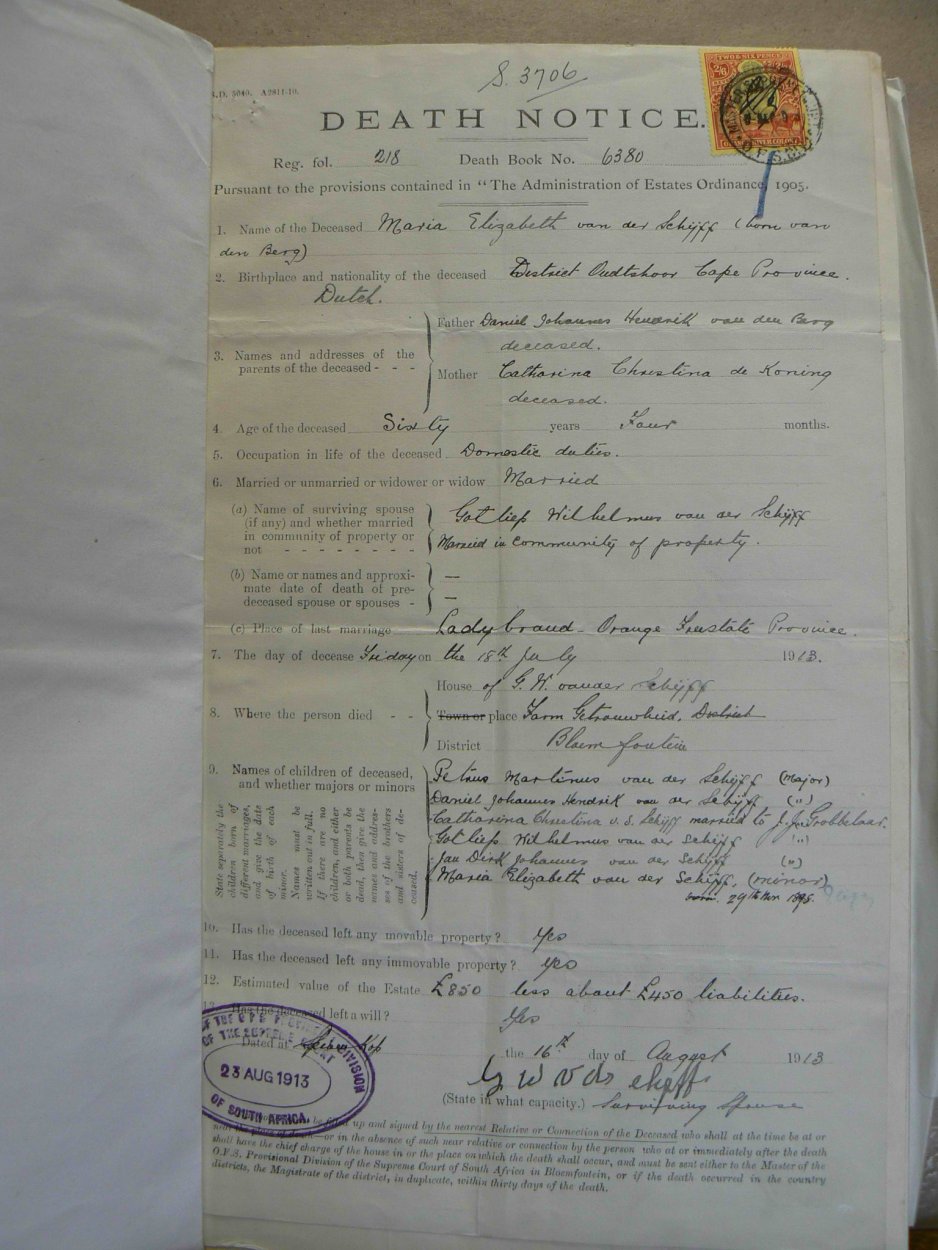 S. 3706
TWO & SIX PENCE
2/6
DEATH NOTICE.
Reg. fol. 218 Death Book No. 6380
Pursuant to the provisions contained in "The Administration of Estates Ordinance, 1905.
1. Name of the Deceased Maria Elizabeth van der Schijff (born van
den Berg)
2. Birthplace and nationality of the deceased District Oudtshoor Cape Province.
Dutch.
3. Names and addresses of the parents of the deceased - - -
Father Daniel Johannes Hendrik van den Berg
deceased.
Mother Catharina Christina de Koning
deceased.
4. Age of the deceased Sixty years Four months.
5. Occupation in life of the deceased Domestic duties.
6. Married or unmarried or widower or widow Married
(a) Name of surviving spouse
(if any) and whether married
in community of property or
not - - - - - - - -
Gotlieb Wilhelmus van der Schijff
Married in community of property.
(b) Name or names and approxi-
mate date of death of pre-
deceased spouse or spouses -
—
—
(c) Place of last marriage Ladybrand - Orange Freestate Province.
7. The day of decease Friday on the 18th July 1913.
8. Where the person died - -
House of G. W. van der Schijff
Town or place Farm Getrouwheid. District
District Bloemfontein
9. Names of children of deceased,
and whether majors or minors
State seperately the
children born of
different marriages,
and give the date
of birth of each
minor.
Names must be
written out in full.
If there are no
children, and either
or both parents be
dead, then give the
names and addres-
ses of the brothers
and sisters of de-
ceased.
Petrus Martinus van der Schijff (Major)
Daniel Johannes Hendrik van der Schijff (")
Catharina Christina v. d. Schijff married to J. J. Grobbelaar.
Gotlieb Wilhelmus van der Schijff "
Jan Dirk Johannes van der Schijff (")
Maria Elizabeth van der Schijff, (minor)
born 29th
10. Has the deceased left any movable property? Yes
11. Has the deceased left any immovable property? yes
12. Estimated value of the Estate £850 less about £450 liabilities.
13. Has the deceased left a will? Yes
Dated at Kop the 16th day of August 1913
G W v d schyff
(State in what capacity.) Surviving Spouse
23 AUG 1913
OF SOUTH AFRICA.
up and signed by the nearest Relative or Connection of the Deceased who shall at the time be at or
near the place of death—or in the absence of such near relative or connection by the person who at or immediately after the death
shall have the chief charge of the house in or the place on which the death shall occur, and must be sent either to the Master of the
O.F.S. Provisional Division of the Supreme Court of South Africa in Bloemfontein, or if the death occurred in the country
districts, the Magistrate of the district, in duplicate, within thirty days of the death.